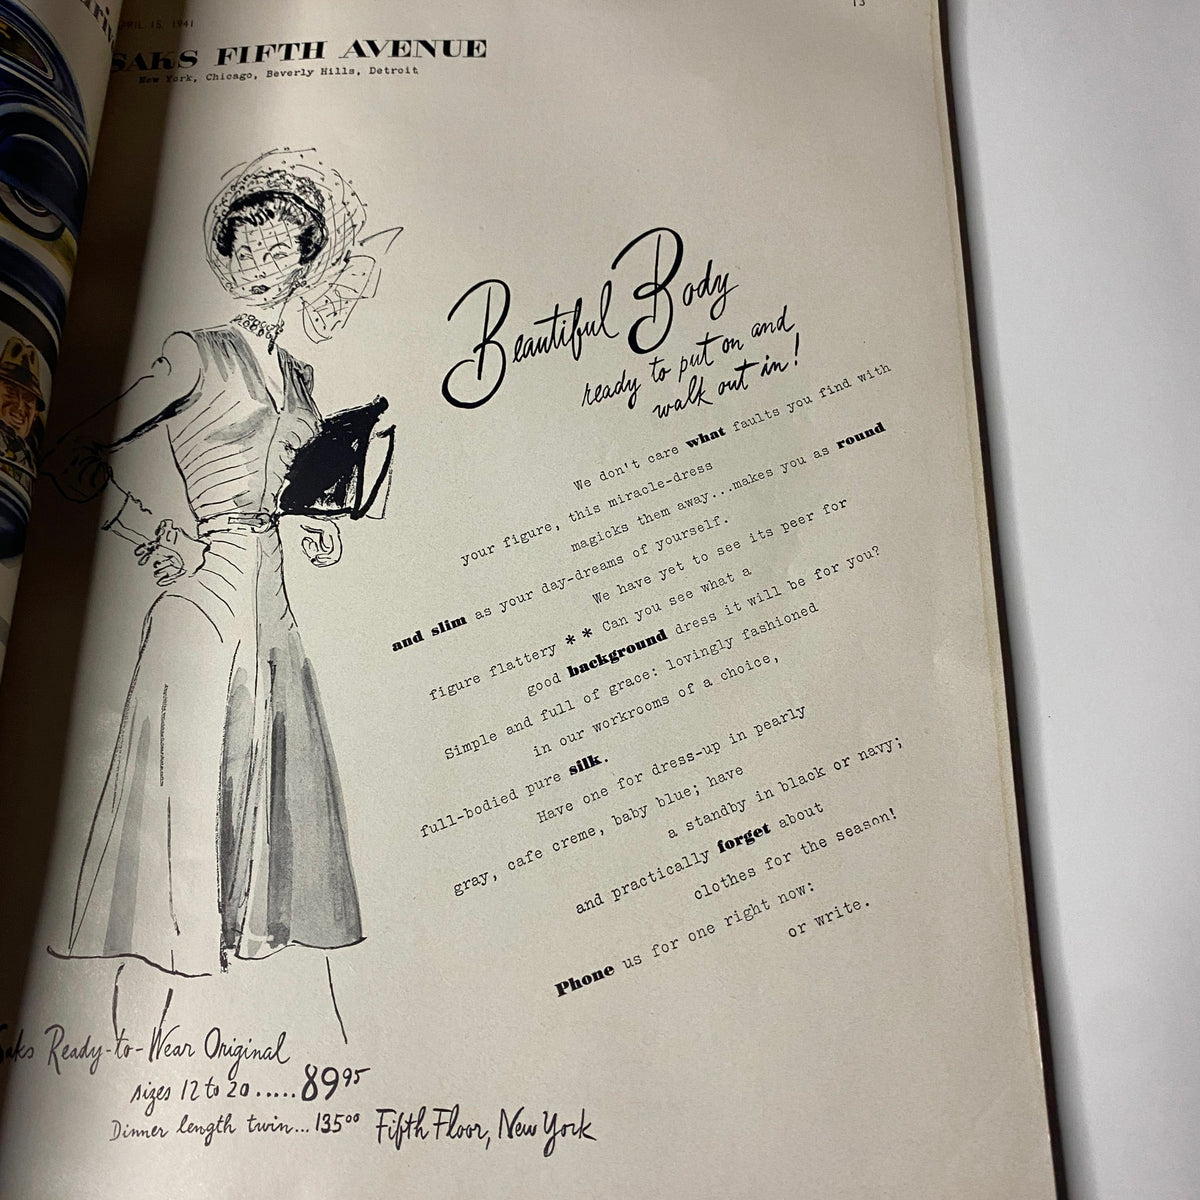 APRIL 15, 1941
13
SAKS FIFTH AVENUE
New York, Chicago, Beverly Hills, Detroit
Beautiful Body
ready to put on and
walk out in!
We don't care what faults you find with
your figure, this miracle-dress
magicks them away...makes you as round
and slim as your day-dreams of yourself.
We have yet to see its peer for
figure flattery ** Can you see what a
good background dress it will be for you?
Simple and full of grace: lovingly fashioned
in our workrooms of a choice,
full-bodied pure silk.
Have one for dress-up in pearly
gray, cafe creme, baby blue; have
a standby in black or navy;
and practically forget about
clothes for the season!
Phone us for one right now:
or write.
Saks Ready-to-Wear Original
sizes 12 to 20.....89⁹⁵
Dinner length twin...135⁰⁰ Fifth Floor, New York